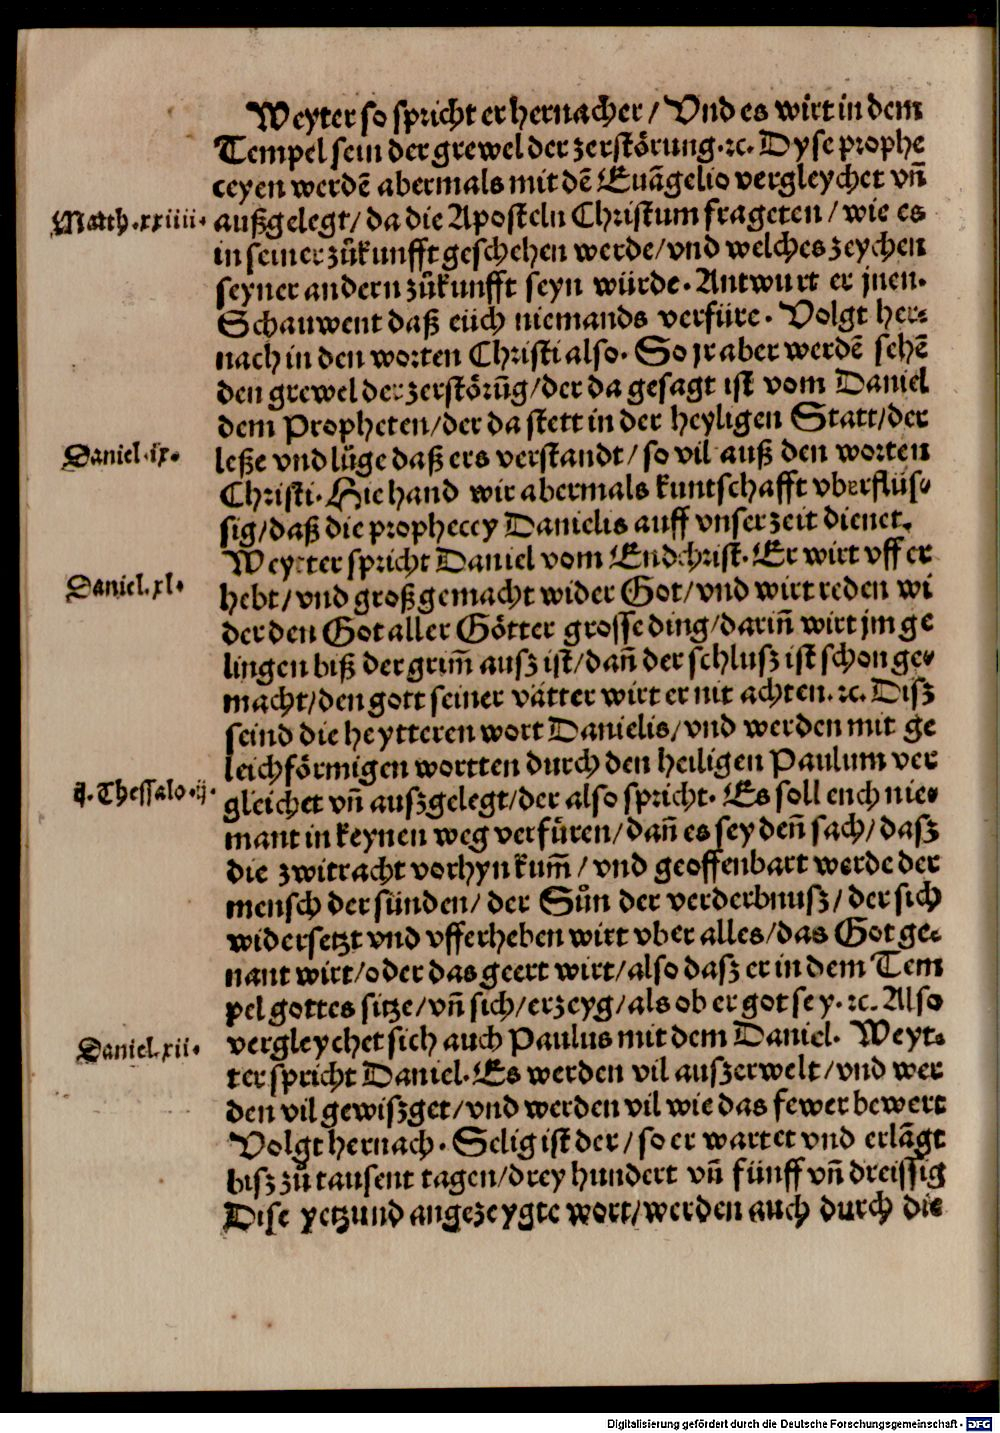 Weyter so spricht er hernacher / Vnd es wirt in dem
Tempel sein der grewel der zerstörung.ꝛc. Dyse prophe
ceyen werdē abermals mit dē Euāgelio vergleychet vn̄
Matth.xxiiii.
außgelegt / da die Aposteln Christum frageten / wie es
in seiner zůkunfft geschehen werde / vnd welches zeychen
seyner andern zůkunfft seyn würde. Antwurt er jnen.
Schauwent daß eüch niemands verfüre. Volgt her⸗
nach in den worten Christi also. So jr aber werdē sehē
den grewel der zerstörūg / der da gesagt ist vom Daniel
dem Propheten / der da stett in der heyligen Statt / der
Daniel.ix.
leße vnd lůge daß ers verstandt / so vil auß den worten
Christi. Hie hand wir abermals kuntschafft vberflüs⸗
sig / daß die prophecey Danielis auff vnser zeit dienet.
Weytter spricht Daniel vom Endchrist. Er wirt vff er
Daniel.xl.
hebt / vnd groß gemacht wider Got / vnd wirt reden wi
der den Got aller Götter grosse ding / darin̄ wirt jm ge
lingen biß der grim̄ ausz ist / dan̄ der schlusz ist schon ge⸗
macht / den gott seiner vätter wirt er nit achten.ꝛc. Disz
seind die heytteren wort Danielis / vnd werden mit ge
leichförmigen wortten durch den heiligen Paulum ver
ij. Thessalo.ij.
gleichet vn̄ auszgelegt / der also spricht. Es soll euch nie⸗
mant in keynen weg verfüren / dan̄ es sey den̄ sach / dasz
die zwitracht vorhyn kum̄ / vnd geoffenbart werde der
mensch der sünden / der Sůn der verderbnusz / der sich
widersetzt vnd vfferheben wirt vber alles / das Got ge⸗
nant wirt / oder das geert wirt / also dasz er in dem Tem
pel gottes sitze / vn̄ sich / erzeyg / als ob er got sey.ꝛc. Also
Daniel.xii.
vergleychet sich auch Paulus mit dem Daniel. Weyt⸗
ter spricht Daniel. Es werden vil auszerwelt / vnd wer
den vil gewiszget / vnd werden vil wie das fewer bewert
Volgt hernach. Selig ist der / so er wartet vnd erlāgt
bisz zů tausent tagen / drey hundert vn̄ fünff vn̄ dreissig
Dise yetzund angezeygte wort / werden auch durch die
Digitalisierung gefördert durch die Deutsche Forschungsgemeinschaft - DFG